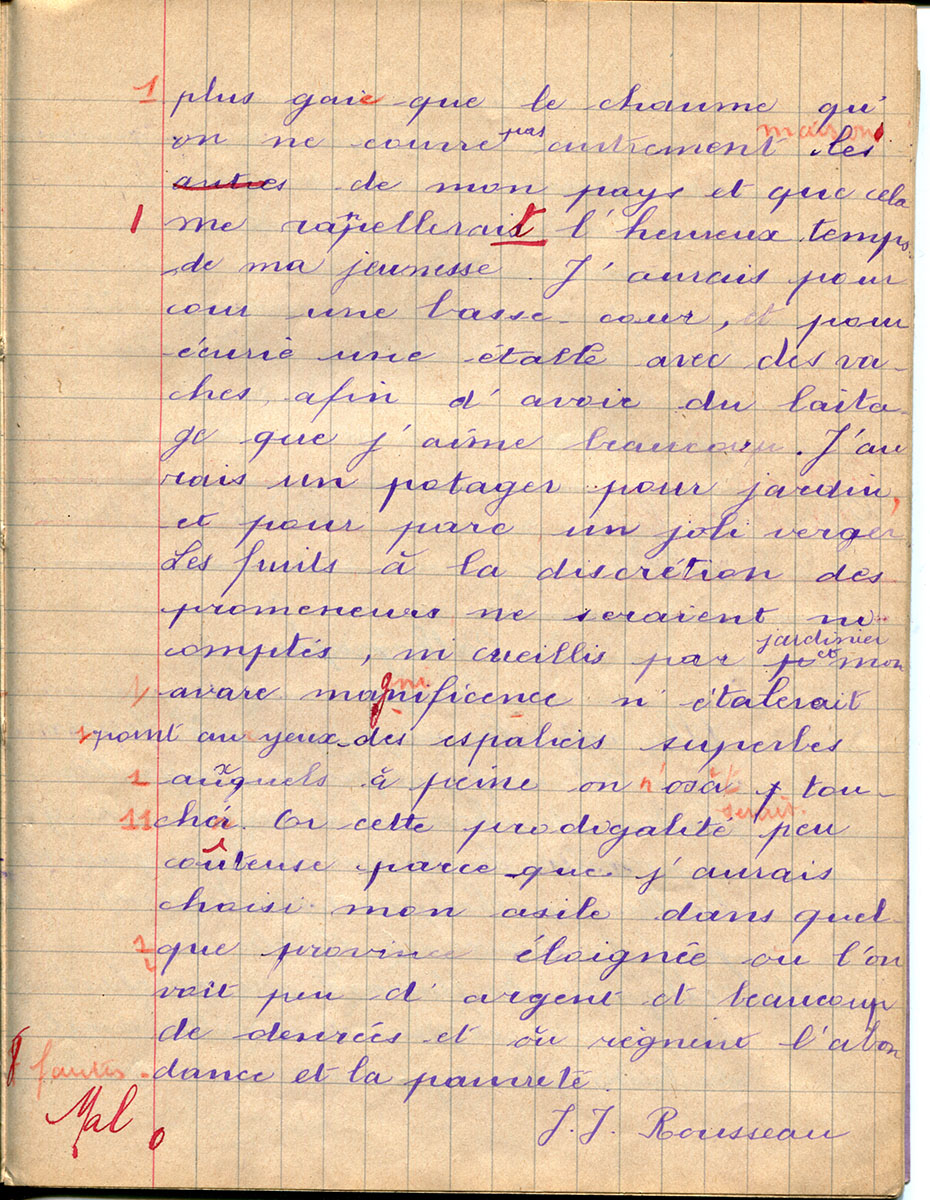 1 plus gaie que le chaume qu'
on ne couvre pas autrement les maisons
autres de mon pays et que cela
1 me rappellerait l'heureux temps
de ma jeunesse. J'aurais pour
cour une basse-cour, et pour
écurie une étable avec des va-
ches, afin d'avoir du laita-
ge que j'aime beaucoup. J'au
rais un potager pour jardin,
et pour parc un joli verger
Les fruits à la discrétion des
promeneurs ne seraient ni
comptés, ni cueillis par jardinier et mon
avare magnificence n'étalerait
1 point aux yeux des espaliers superbes
1 auxquels à peine on n'osa tou-
serait
11 cher. Or cette prodigalité peu
coûteuse parce que j'aurais
choisi mon asile dans quel-
1 que province éloignée ou l'on
voit peu d'argent et beaucoup
de denrées et où règnent l'abon
8 fautes dance et la pauvreté.
Mal 0
J. J. Rousseau